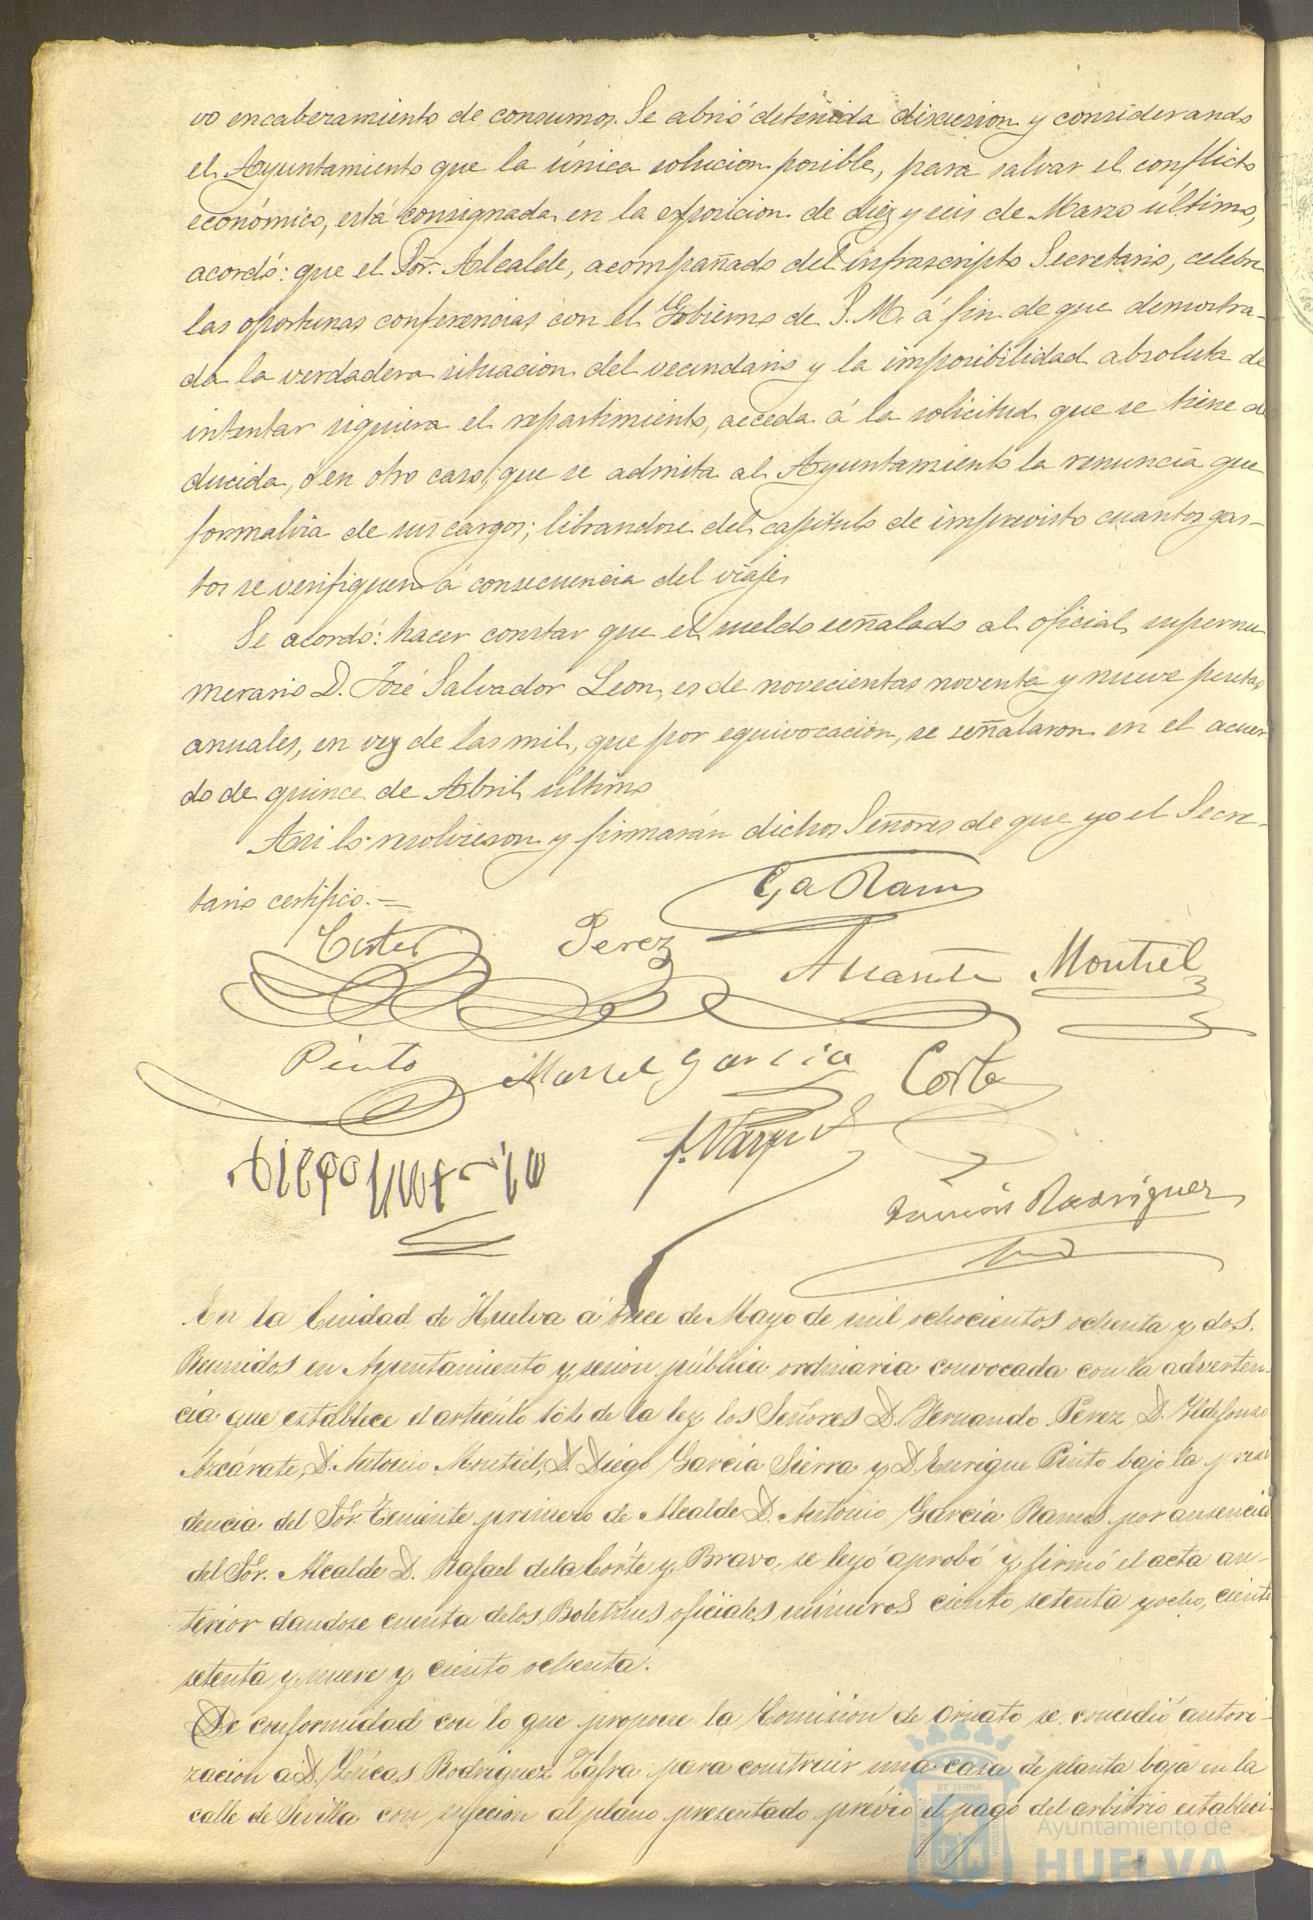 vo encabezamiento de consumos. Se abrió detenida discusion y considerando
el Ayuntamiento que la única solucion posible, para salvar el conflicto
económico, está consignada en la esposicion de diez y seis de Marzo último,
acordó: que el Sor. Alcalde, acompañado del infrascripto Secretario, celebre
las oportunas conferencias con el Gobierno de S. M. á fin de que demostra-
da la verdadera situacion del vecindario y la imposibilidad absoluta de
intentar siquiera el repartimiento, acceda á la solicitud que se tiene de
ducida, ó en otro caso, que se admita al Ayuntamiento la renuncia que
formaliza de sus cargos; librandose del capítulo de imprevisto cuantos gas-
tos se verifiquen á consecuencia del viaje.
Se acordó: hacer constar que el sueldo señalado al oficial supernu
merario D. José Salvador Leon, es de novecientas noventa y nueve pesetas
anuales, en vez de las mil, que por equivocacion, se señalaron en el acuer
do de quince de Abril último
Asi lo resolvieron y firmarán dichos Señores de que yo el Secre-
tario certifico.=
Ga Ramos
Cortes Perez
Azcárate Montiel
Pinto Manuel Garcia Corte
F. Vazquez
Diego
Rodriguez
En la Ciudad de Huelva á once de Mayo de mil ochocientos ochenta y dos.
Reunidos en Ayuntamiento y sesion pública ordinaria convocada con la adverten-
cia que establece el artículo 104 de la ley los Señores D. Fernando Perez, D. Yldefonso
Azcárate, D. Antonio Montiel, D. Diego Garcia Sierra y D. Enrique Pinto bajo la presi
dencia del Sor. Teniente primero de Alcalde D. Antonio Garcia Ramos por ausencia
del Sor. Alcalde D. Rafael de la Corte y Bravo, se leyó aprobó y firmó el acta an-
terior dandose cuenta de los Boletines oficiales números ciento setenta y ocho, ciento
setenta y nueve y ciento ochenta.
De conformidad con lo que propone la Comision de ornato se concedió autori-
zacion á D. Lúcas Rodriguez Zafra para construir una casa de planta baja en la
calle de Sevilla con sujecion al plano presentado prévio el pago del arbitrio estableci-
Ayuntamiento de
HUELVA